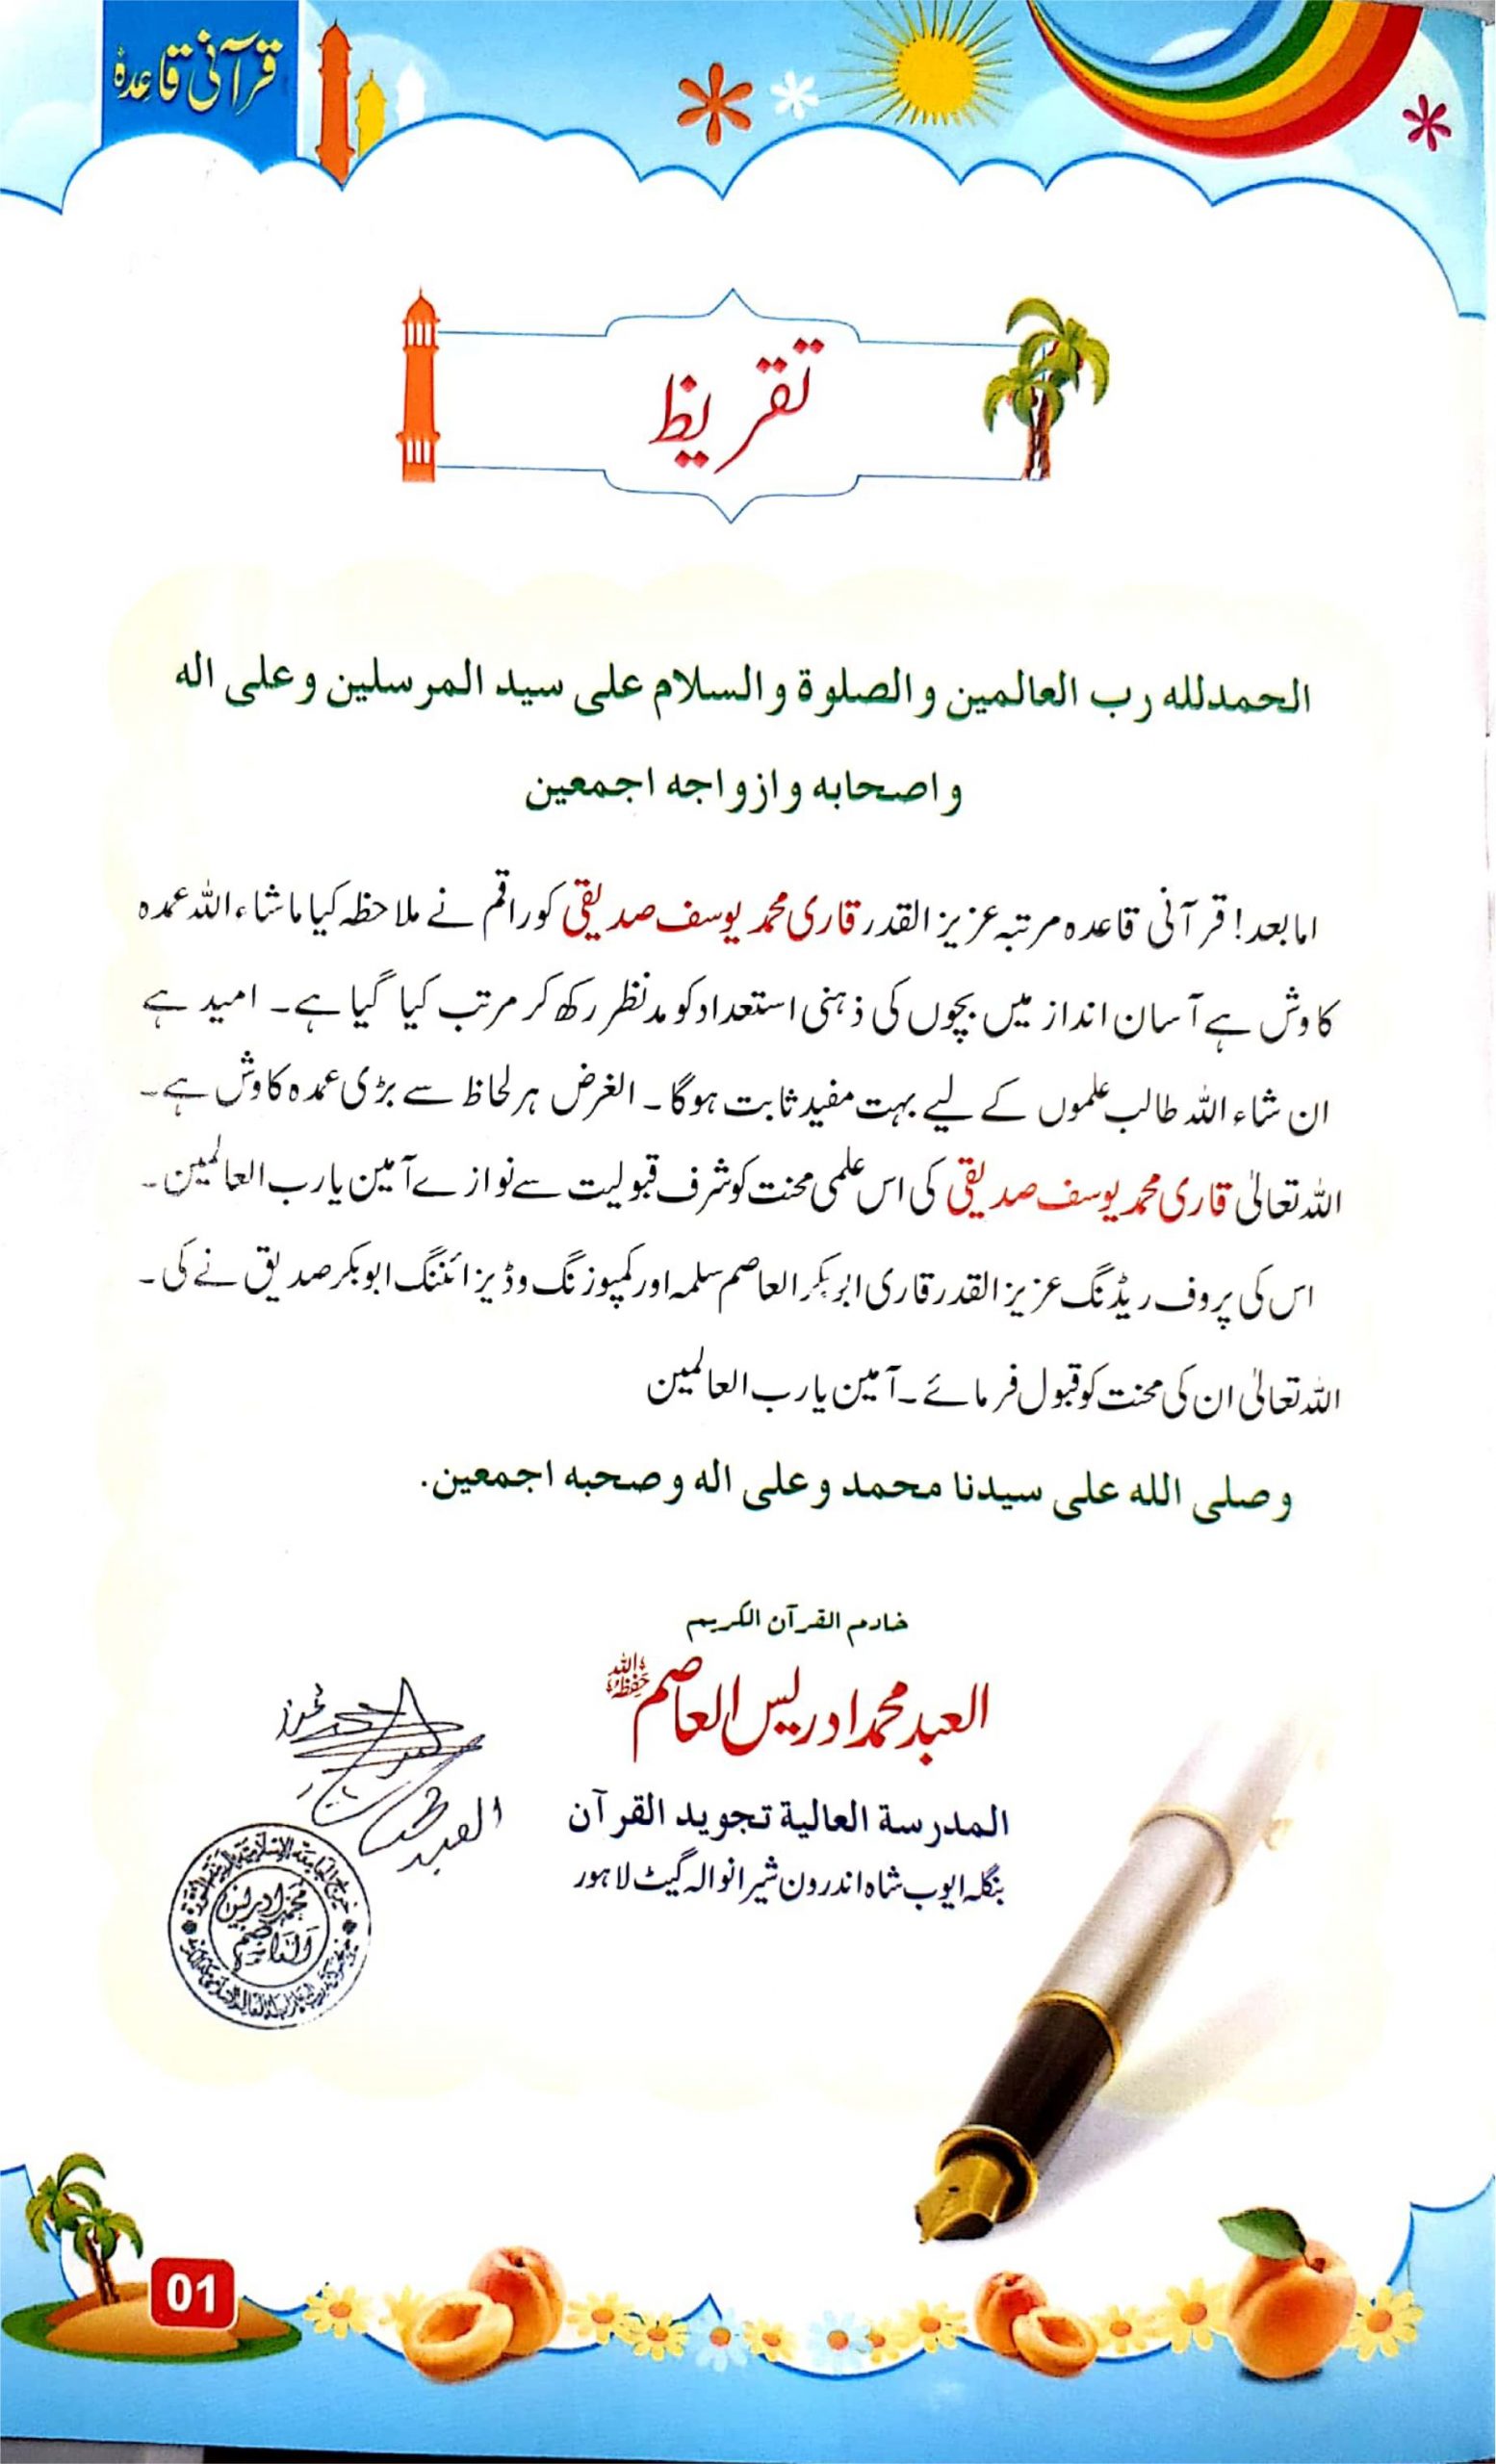 قرآنی قاعدہ
تقریظ
الحمدلله رب العالمين والصلوة والسلام على سيد المرسلين وعلى اله
واصحابه وازواجه اجمعين
امابعد! قرآنی قاعدہ مرتبہ عزیز القدر قاری محمد یوسف صدیقی کو راقم نے ملاحظہ کیا ماشاء اللہ عمدہ
کاوش ہے آسان انداز میں بچوں کی ذہنی استعداد کو مدنظر رکھ کر مرتب کیا گیا ہے۔ امید ہے
ان شاء اللہ طالب علموں کے لیے بہت مفید ثابت ہوگا۔ الغرض ہر لحاظ سے بڑی عمدہ کاوش ہے۔
اللہ تعالیٰ قاری محمد یوسف صدیقی کی اس علمی محنت کو شرف قبولیت سے نوازے آمین یارب العالمین۔
اس کی پروف ریڈنگ عزیز القدر قاری ابوبکر العاصم سلمہ اور کمپوزنگ و ڈیزائننگ ابوبکر صدیق نے کی۔
اللہ تعالیٰ ان کی محنت کو قبول فرمائے۔ آمین یارب العالمین
وصلى الله على سيدنا محمد وعلى اله وصحبه اجمعين.
خادم القرآن الکریم
العبد محمد ادریس العاصم حفظہ اللہ
المدرسة العالية تجويد القرآن
بنگلہ ایوب شاہ اندرون شیرانوالہ گیٹ لاہور
العبد محمد
محمد ادریس
العاصم
01